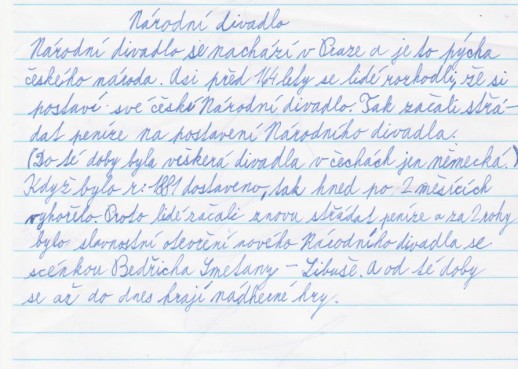 Národní divadlo
Národní divadlo se nachází v Praze a je to pýcha
českého národa. Asi před 144 lety se lidé rozhodli, že si
postaví své české Národní divadlo. Tak začali střá-
dat peníze na postavení Národního divadla.
(Do té doby byla víškerá divadla v čechách jen německá.)
Když bylo r. 1881 dostaveno, tak hned po 2 měsících
vyhořelo. Proto lidé začali znovu střádat peníze a za 2 rohy
bylo slavnostní otevření nového Národního divadla se
scénkou Bedřicha Smetany – Libuše. A od té doby
se až do dnes hrají nádherné hry.